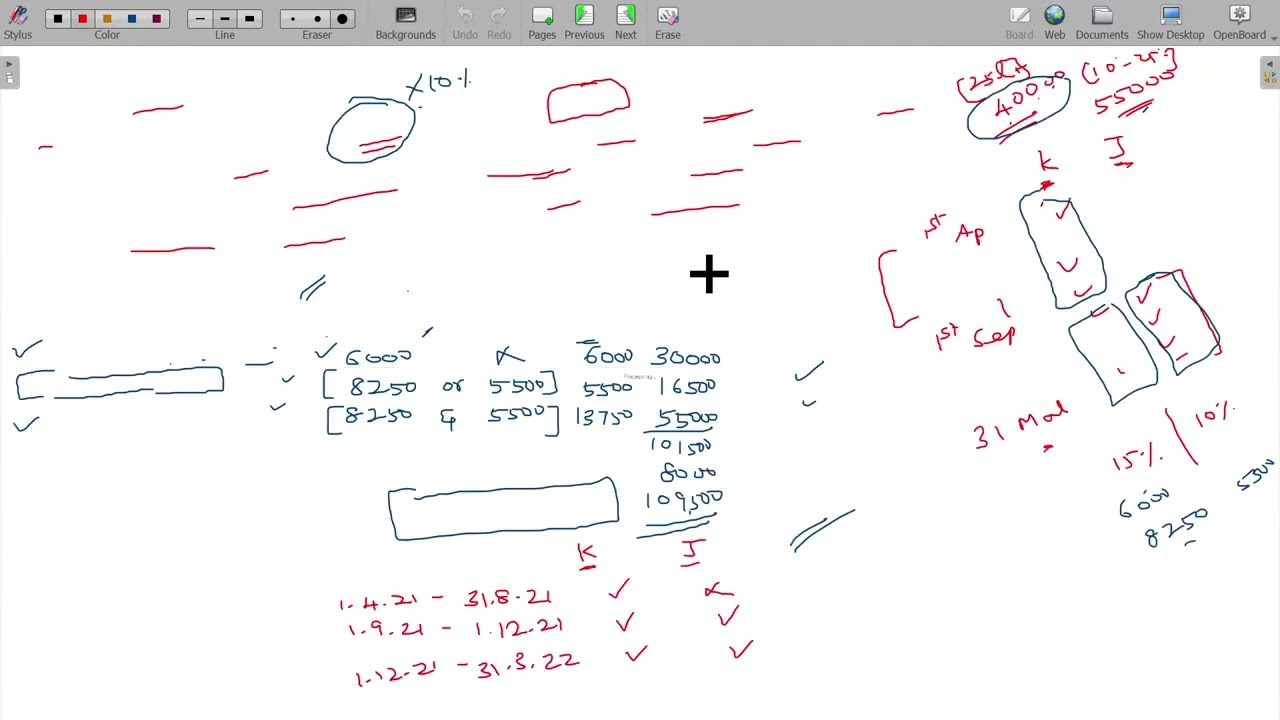 Stylus Color Line Eraser Backgrounds Undo Redo Pages Previous Next Erase Board Web Documents Show Desktop OpenBoard
x 10%
[25L+
40000
[10-25%]
55000
K J
1st Ap
1st Sep
31 Mar
15% 10%
6000
8250
5500
6000 x 6000 30000
[8250 or 5500] 5500 16500
Processing...
[8250 & 5500] 13750 55000
101500
8000
109,500
K J
1.4.21 - 31.8.21 ✓ x
1.9.21 - 1.12.21 ✓ ✓
1.12.21 - 31.3.22 ✓ ✓